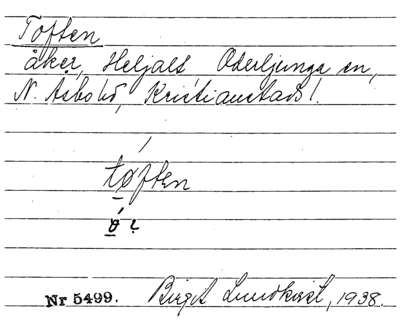 Toften
åker, Heljalt Oderljunga sn,
N. Åsbo hd, Kristianstads l.
tøften
ø e
Nr 5499. Birgit Lundkvist, 1938.